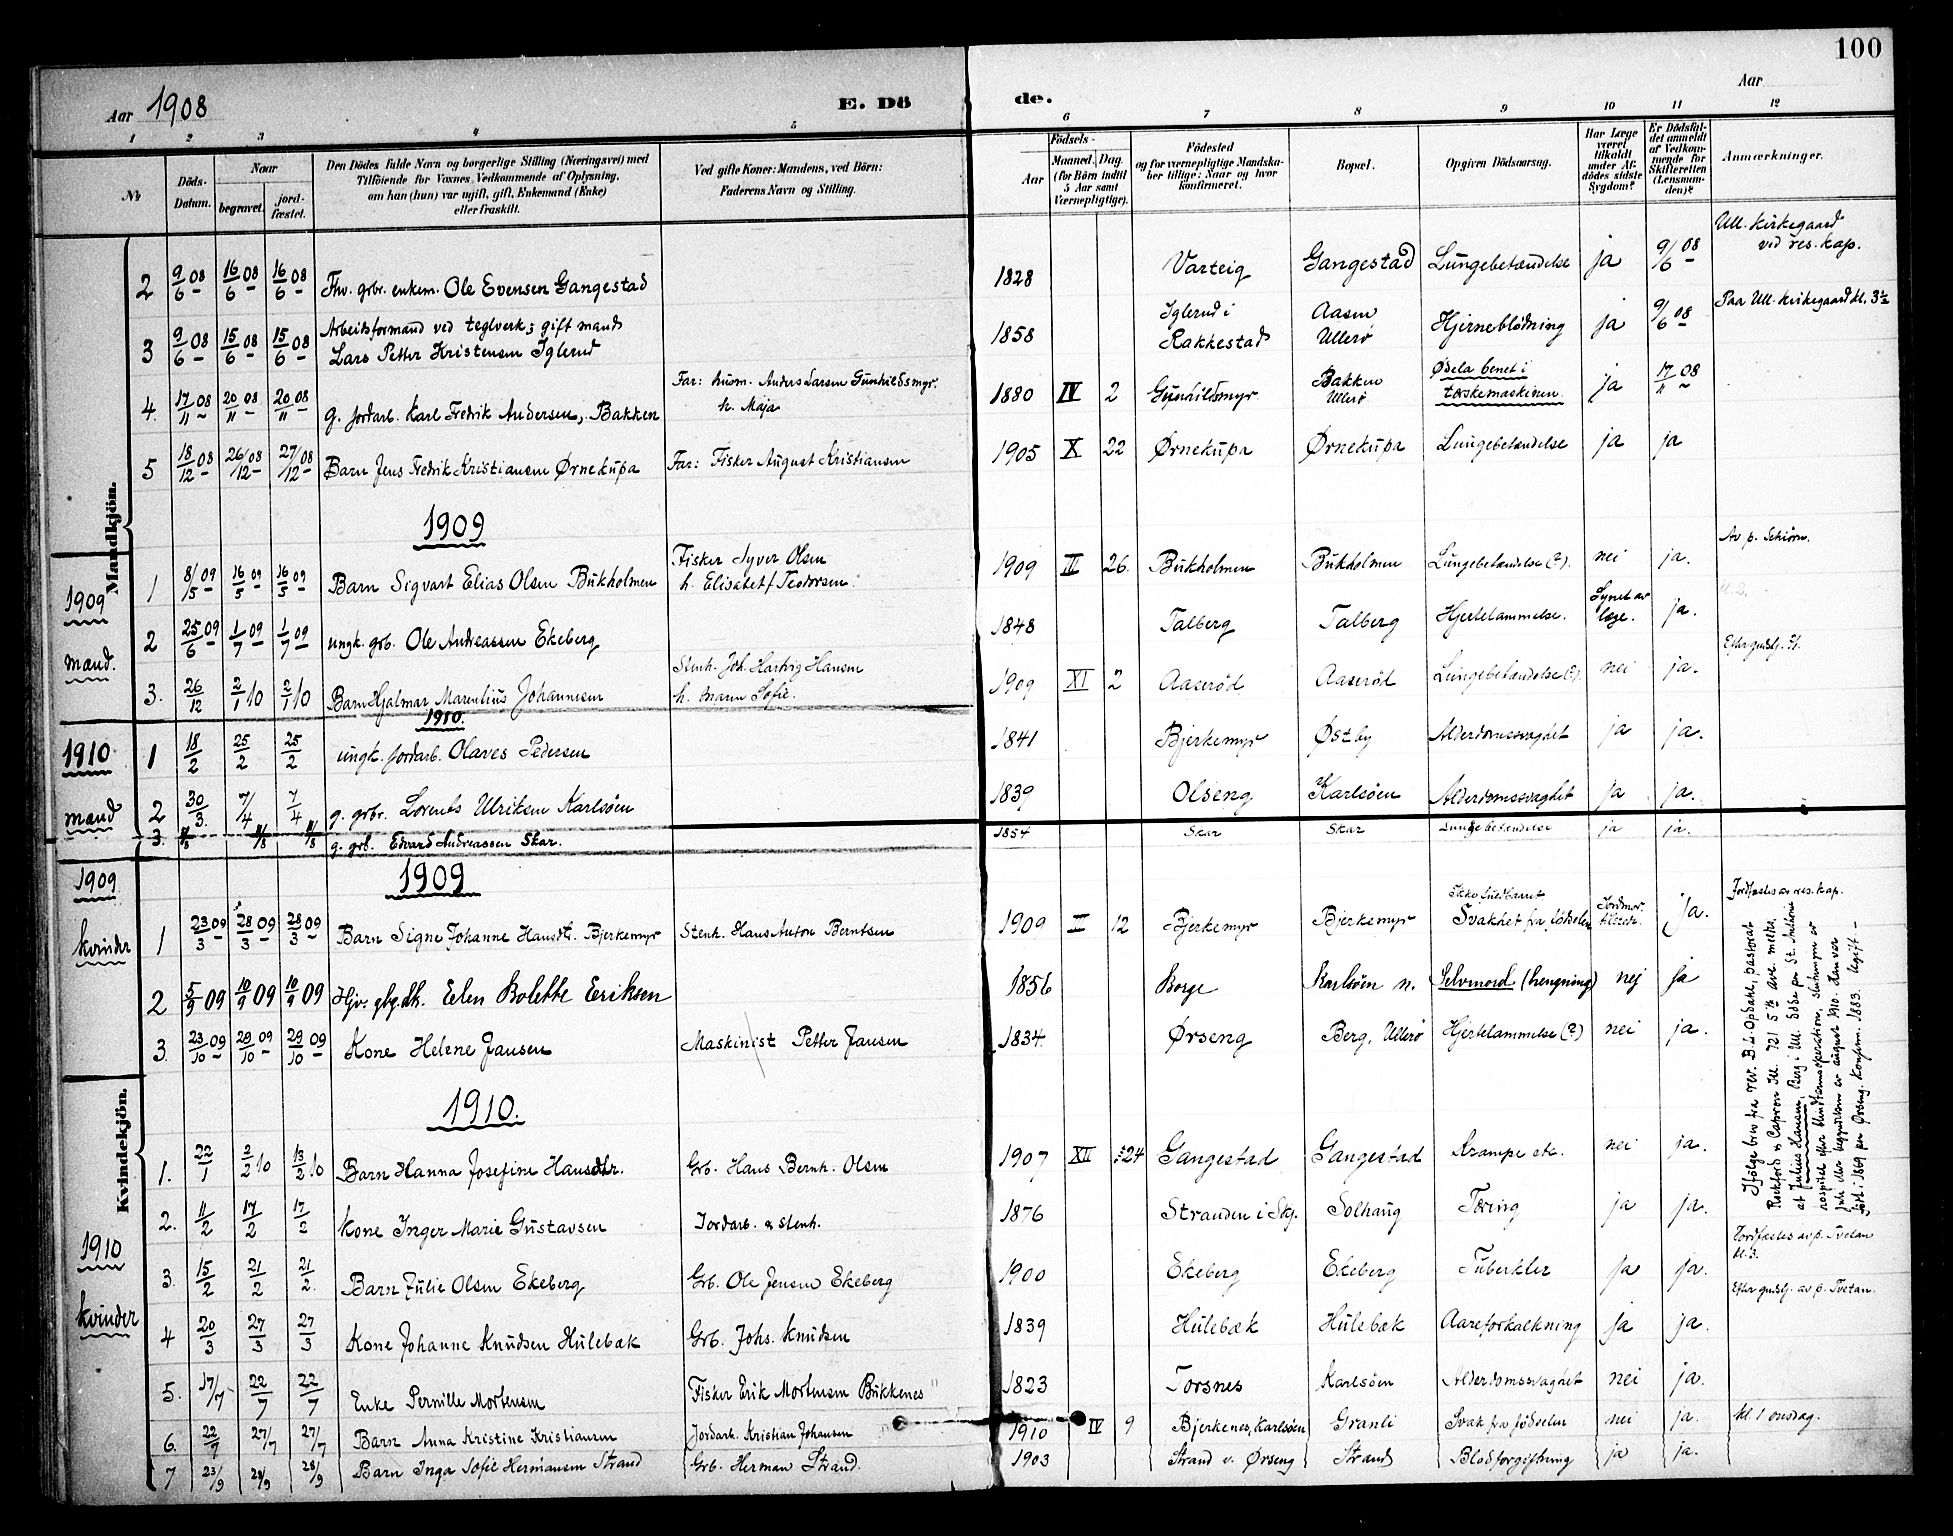 100
Aar 1908
E. Dö
de.
Aar
1 2 3 4 5 6 7 8 9 10 11 12
No
Döds-Datum.
Naar
begravet.
jord-fæstet.
Den Dödes fulde Navn og borgerlige Stilling (Næringsvei) med
Tilföiende för Voxnes Vedkommende af Oplysning,
om han (hun) var ugift, gift, Enkemand (Enke)
eller fraskilt.
Ved gifte Koner: Mandens, ved Börn:
Faderens Navn og Stilling.
Födsels-
Aar
Maaned. Dag.
(for Börn indtil
5 Aar samt
Værnepligtige).
Födested
og for værnepligtige Mandska-
ber tillige: Naar og hvor
konfirmeret.
Bopæl.
Opgiven Dödsaarsag.
Har Læge
været
tilkaldt
under Af-
dödes sidste
Sygdom?
Er Dödsfal-
det anmeldt
af Vedkom-
mende for
Skifteretten
(Lensman-
den)?
Anmærkninger.
Mandkjön.
2 9/6 08 16/6 08 16/6 08 Fhv. grbr. enkem. Ole Evensen Gangestad 1828 Varteig Gangestad Lungebetændelse ja 9/6 08 Ull. kirkegaard
ved res. kap.
3 9/6 08 15/6 08 15/6 08 Arbeidsformand ved teglverk; gift mand
Lars Petter Kristensen Iglerud 1858 Iglerud i
Rakkestad Aasen
Ullerø Hjerneblödning ja 9/6 08 Paa Ull. kirkegaard kl. 3½
4. 17/11 08 20/11 08 20/11 08 g. jordarb. Karl Fredrik Andersen, Bakken Far: husm. Anders Larsen Gunhildsmyr.
h. Maja 1880 IV 2 Gunhildsmyr Bakken
Ullerø Ødela benet i
tærskemaskinen. ja 17/11 08
5 18/12 08 26/12 08 27/12 08 Barn Jens Fredrik Kristiansen Ørnekupa Far: Fisker August Kristiansen 1905 X 22 Ørnekupa Ørnekupa Lungebetændelse ja ja
1909
1909
mænd.
1 8/5 09 16/5 09 16/5 09 Barn Sigvart Elias Olsen Bukholmen Fisker Syver Olsen
h. Elisabet f. Teodorsen 1909 26 Bukholmen Bukholmen Lungebetændelse (?). nei ja. Av p. Schiørn.
2 25/6 09 1/7 09 1/7 09 ungk. grb. Ole Andreassen Ekeberg 1848 Talberg Talberg Hjertelammelse. Synet av
læge. ja.
3. 26/12 2/1 10 2/1 10 Barn Hjalmar Marenlius Johannesen Stenh. Joh. Hartvig Hansen
h. Maren Sofie. 1909 XI 2 Aaserød Aaserød Lungebetændelse (?). nei ja. Efter gudstj.
1910.
1910
mænd
1 18/2 25/2 25/2 ungk. jordarb. Olaves Pedersen 1841 Bjerkemyr Østby Alderdomssvaghet ja ja.
2 30/3. 7/4 7/4 g. grbr. Lorents Ulriksen Karlsöen 1839 Olseng Karlsöen Alderdomssvaghet ja ja.
3. 8/8 11/8 11/8 g. grb. Edvard Andreassen Skar. 1854 Skar Skar Lungebetændelse ja ja.
1909
1909
kvinder
1 23/3 09 28/3 09 28/3 09 Barn Signe Johanne Hansdtr. Bjerkemyr Stenh. Hans Anton Berntsen 1909 II 12 Bjerkemyr Bjerkemyr Ikke fuldbaaret
Svakhet fra födselen Jordmor
tilstede. ja. Jordfæstes av res. kap.
2 5/9 09 10/9 09 10/9 09 Hjv. gbg.dk. Eelen Bolette Eriksen 1856 Borge Karlsöen n. Selvmord (hengning) nej ja
3. 23/10 09 29/10 09 29/10 09 Kone Helene Jansen Maskinist Petter Jansen 1834. Ørseng Berg, Ullerø Hjertelammelse (?) nei ja.
Ifölge brev fra rev. B. L. Opdahl, pastorat
Rockford & Capron Ill. 721 5th ave. meldes
at Julius Hansen, Berg i Ull. döde paa St. Anthonie
hospital efter blindtarmsoperation, slutningen av
juli eller begyndelsen av august 1910. Han var
født i 1869 paa Ørseng. Konfirm. 1883. Ugift. -
1910.
Kvindekjön.
1910
kvinder
1. 22/1 2/2 10 13/2 10 Barn Hanna Josefine Hansdtr. Grb. Hans Bernh. Olsen 1907 XII 24 Gangestad Gangestad Krampe etc. nei ja.
2. 11/2 17/2 17/2 Kone Inger Marie Gustavsen Jordarb. & stenh. 1876 Stranden i Skj. Solhaug Tæring ja ja. Jordfæstes av p. Tvetan
kl. 3.
3. 15/2 21/2 21/2. Barn Julie Olsen Ekeberg Grb. Ole Jensen Ekeberg 1900 Ekeberg Ekeberg Tuberkler ja ja. Efter gudstj. av p. Tvetan.
4 20/3 27/3 27/3 Kone Johanne Knudsen Hulebæk Grb. Johs. Knudsen 1839 Hulebæk Hulebæk Aareforkalkning ja ja.
5. 17/7 22/7 22/7 Enke Pernille Mortensen Fisker Erik Mortensen Bukkenes 1823 Torsnes Karlsöen Alderdomssvaghet nei ja.
6. 22/7 27/7 27/7 Barn Anna Kristine Kristiansen Jordarb. Kristian Johansen 1910 IV 9 Bjerkenes, Karlsöen Granli Svak fra fødselen nei ja. kl. 1 onsdag.
7 23/9 28/9 28/9 Barn Inga Sofie Hermansen Strand Grb. Herman Strand. 1903 Strand v. Ørseng Strand Blodforgiftning ja ja.